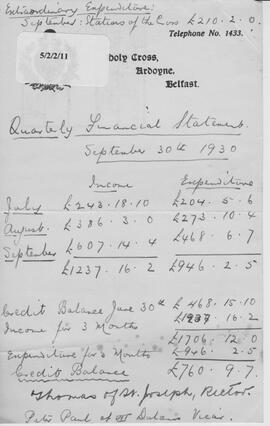 Extraordinary Expenditure:
September: Stations of the Cross £210. 2. 0.
Telephone No. 1433.
5/2/2/11
Holy Cross,
Ardoyne,
Belfast.
Quarterly Financial Statement.
September 30th 1930
Income Expenditure
July £243.18.10 £204. 5. 6
August £386. 3. 0 £273. 10. 4
September £607. 14. 4 £468. 6. 7
£1237. 16. 2 £946. 2. 5
Credit Balance June 30th £468. 15. 10
Income for 3 Months £1237. 16. 2
£1706. 12. 0
Expenditure for 3 Months £946. 2. 5
Credit Balance £760. 9. 7.
Thomas of St. Joseph, Rector.
Peter Paul of Vicar.